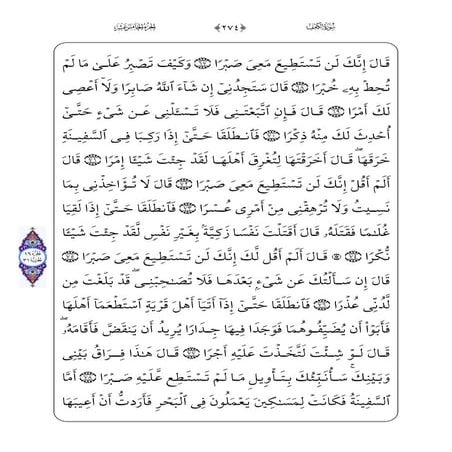 سُورَةُ الكَهْفِ ﴿٢٧٤﴾ الجُزْءُ الخَامِسَ عَشَرَ
قَالَ إِنَّكَ لَن تَسْتَطِيعَ مَعِىَ صَبْرًا وَكَيْفَ تَصْبِرُ عَلَىٰ مَا لَمْ
تُحِطْ بِهِۦ خُبْرًا قَالَ سَتَجِدُنِىٓ إِن شَآءَ ٱللَّهُ صَابِرًا وَلَآ أَعْصِى
لَكَ أَمْرًا قَالَ فَإِنِ ٱتَّبَعْتَنِى فَلَا تَسْـَٔلْنِى عَن شَىْءٍ حَتَّىٰٓ
أُحْدِثَ لَكَ مِنْهُ ذِكْرًا فَٱنطَلَقَا حَتَّىٰٓ إِذَا رَكِبَا فِى ٱلسَّفِينَةِ
خَرَقَهَا ۖ قَالَ أَخَرَقْتَهَا لِتُغْرِقَ أَهْلَهَا لَقَدْ جِئْتَ شَيْـًٔا إِمْرًا قَالَ
أَلَمْ أَقُلْ إِنَّكَ لَن تَسْتَطِيعَ مَعِىَ صَبْرًا قَالَ لَا تُؤَاخِذْنِى بِمَا
نَسِيتُ وَلَا تُرْهِقْنِى مِنْ أَمْرِى عُسْرًا فَٱنطَلَقَا حَتَّىٰٓ إِذَا لَقِيَا
غُلَـٰمًا فَقَتَلَهُۥ قَالَ أَقَتَلْتَ نَفْسًا زَكِيَّةًۢ بِغَيْرِ نَفْسٍ لَّقَدْ جِئْتَ شَيْـًٔا
نُّكْرًا ۞ قَالَ أَلَمْ أَقُل لَّكَ إِنَّكَ لَن تَسْتَطِيعَ مَعِىَ صَبْرًا
قَالَ إِن سَأَلْتُكَ عَن شَىْءٍۭ بَعْدَهَا فَلَا تُصَـٰحِبْنِى ۖ قَدْ بَلَغْتَ مِن
لَّدُنِّى عُذْرًا فَٱنطَلَقَا حَتَّىٰٓ إِذَآ أَتَيَآ أَهْلَ قَرْيَةٍ ٱسْتَطْعَمَآ أَهْلَهَا
فَأَبَوْا۟ أَن يُضَيِّفُوهُمَا فَوَجَدَا فِيهَا جِدَارًا يُرِيدُ أَن يَنقَضَّ فَأَقَامَهُۥ ۖ
قَالَ لَوْ شِئْتَ لَتَّخَذْتَ عَلَيْهِ أَجْرًا قَالَ هَـٰذَا فِرَاقُ بَيْنِى
وَبَيْنِكَ ۚ سَأُنَبِّئُكَ بِتَأْوِيلِ مَا لَمْ تَسْتَطِع عَّلَيْهِ صَبْرًا أَمَّا
ٱلسَّفِينَةُ فَكَانَتْ لِمَسَـٰكِينَ يَعْمَلُونَ فِى ٱلْبَحْرِ فَأَرَدتُّ أَنْ أَعِيبَهَا